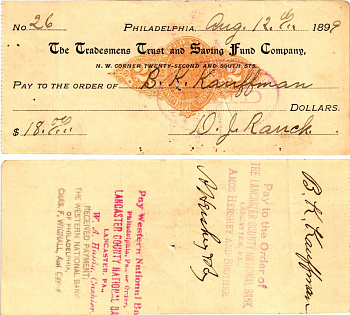 No. 26 PHILADELPHIA, Aug. 12 1899
The Tradesmens Trust and Saving Fund Company,
N. W. CORNER TWENTY-SECOND AND SOUTH STS.
PAY TO THE ORDER OF B. K. Kauffman
DOLLARS.
$ 18. D. J. Ranck
B. K. Kauffman
Pay to the Order of
THE LANCASTER COUNTY NATIONAL BANK,
LANCASTER, PA.
AMOS HERSHEY AND BROTHER.
A Hershey & Bro
Pay Western National Bank
Philadelphia, Pa., or Order,
LANCASTER COUNTY NATIONAL BANK
LANCASTER, PA.
Cashier.
RECEIVED PAYMENT.
THE WESTERN NATIONAL BANK
OF PHILADELPHIA,
CHAS. F.